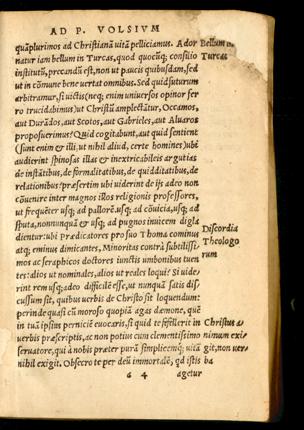 AD P. VOLSIVM
quàplurimos ad Christianā uitā pelliciamus. Ador
natur iam bellum in Turcas, quod quocūq; consilio
institutū, precandū est, non ut paucis quibusdam, sed
ut in cōmune bene uertat omnibus. Sed quid futurum
arbitramur, si uictis (neq; enim uniuersos opinor fer
ro trucidabimus) ut Christū amplectātur, Occamos,
aut Durādos, aut Scotos, aut Gabrieles, aut Aluaros
proposuerimus? Quid cogitabunt, aut quid sentient
(sunt enim & illi, ut nihil aliud, certe homines) ubi
audierint spinosas illas & inextricabileis argutias
de instātibus, de formalitatibus, de quidditatibus, de
relationibus? præsertim ubi uiderint de ijs adeo non
cōuenire inter magnos illos religionis professores,
ut frequēter usq; ad pallorē usq; ad cōuicia, usq; ad
sputa, nonnunquā & usq; ad pugnos inuicem digla
dientur: ubi Prædicatores pro suo Thoma cominus
atq; eminus dimicantes, Minoritas contrà subtilissi-
mos ac seraphicos doctores iunctis umbonibus tuen
tes: alios ut nominales, alios ut reales loqui? Si uide
rint rem usq; adeo difficilē esse, ut nunquā satis dis
cussum sit, quibus uerbis de Christo sit loquendum:
perinde quasi cū moroso quopiā agas dæmone, quē
in tuā ipsius perniciē euocaris, si quid te fefellerit in
uerbis præscriptis, ac non potius cum clementissimo
seruatore, qui à nobis præter purā simplicemq; uitā
nihil exigit. Obsecro te per deū immortalē, qd istis
a 4 agetur
Bellum in
Turcas
Discordia
Theologo
rum
Christus
nimum exi-
git, non uer
ba